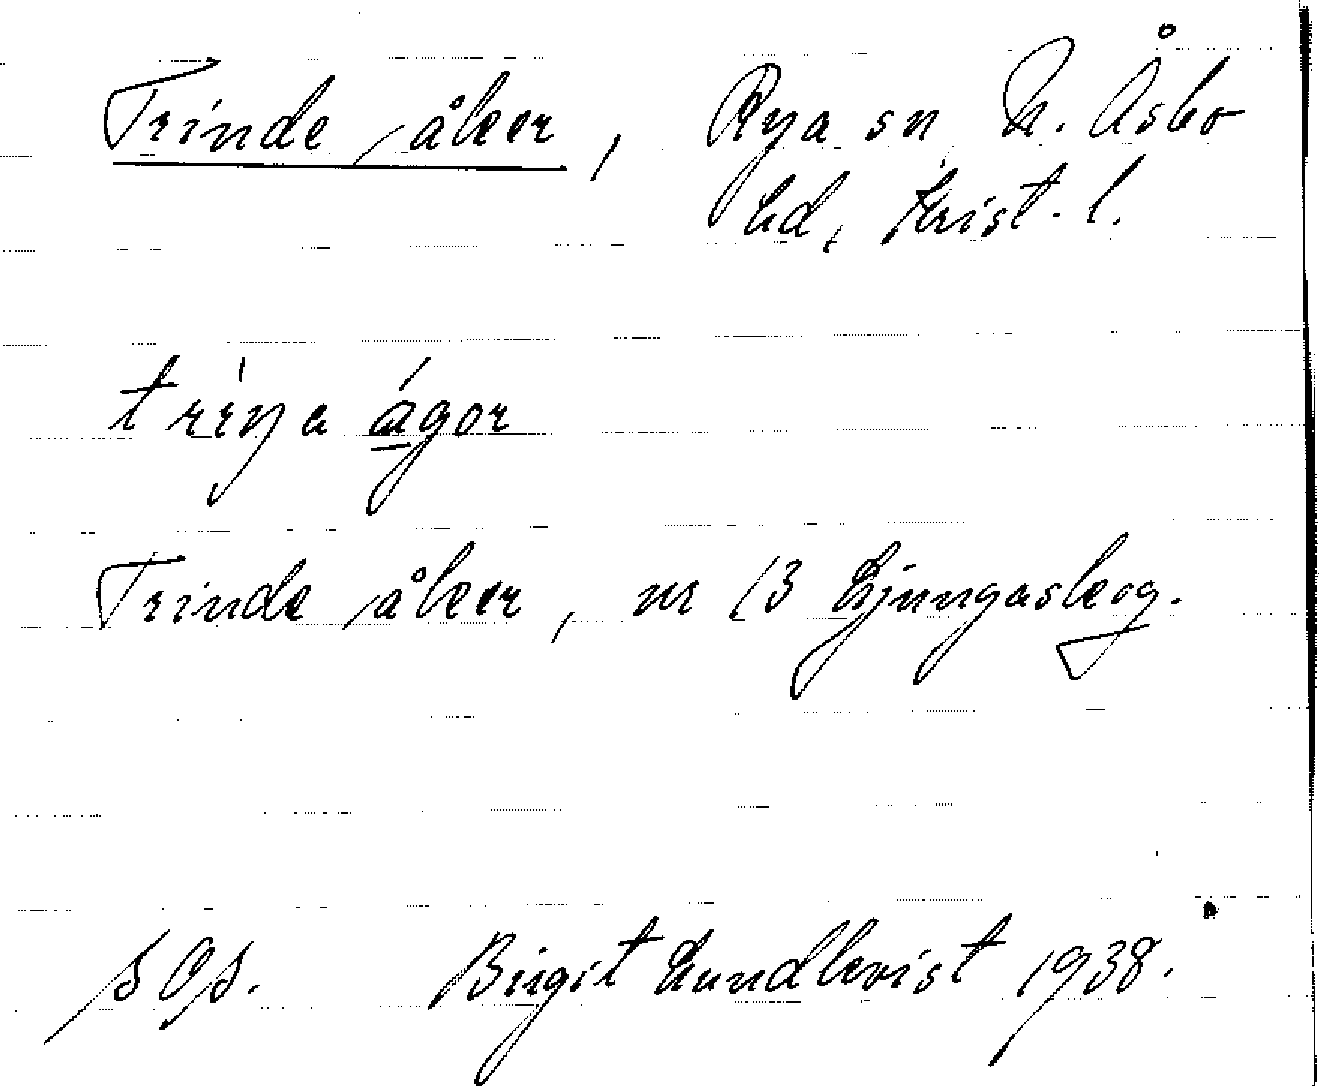 Trinde åker, Rya sn N. Åsbo
hd, Krist. l.
trìŋa ágor
Trinde åker, nr 13 Ljungaskog.
Birgit Lundkvist 1938.